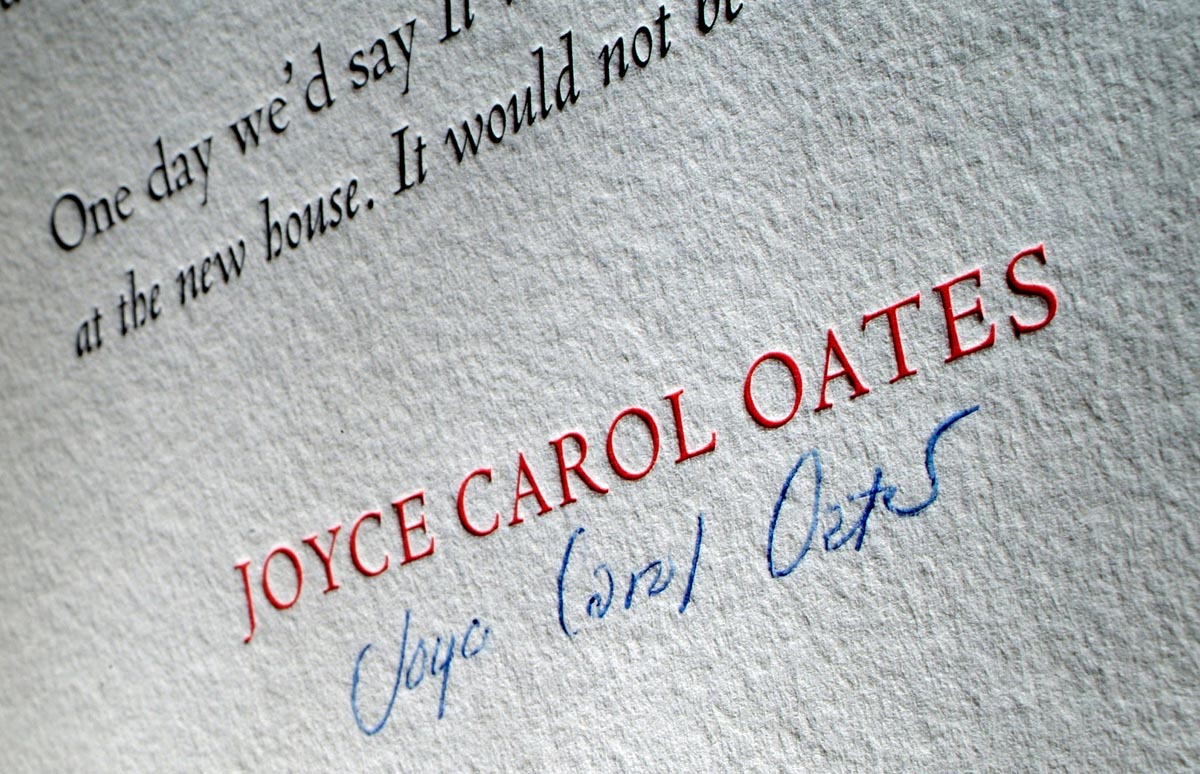 One day we'd say It
at the new house. It would not be
JOYCE CAROL OATES
Joyce Carol Oates